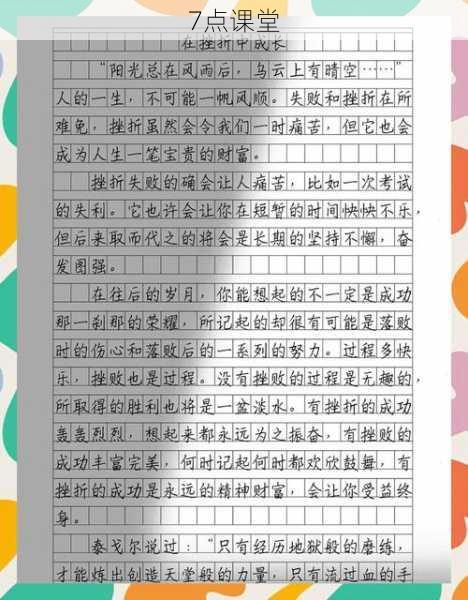 7点课堂
在挫折中成长
“阳光总在风雨后，乌云上有晴空……”
人的一生，不可能一帆风顺。失败和挫折在所
难免，挫折虽然会令我们一时痛苦，但它也会
成为人生一笔宝贵的财富。
挫折失败的确会让人痛苦，比如一次考试
的失利。它也许会让你在短暂的时间怏怏不乐，
但后来取而代之的将会是长期的坚持不懈，奋
发图强。
在往后的岁月，你能想起的不一定是成功
那一刹那的荣耀，所记起的却很有可能是落败
时的伤心和落败后的一系列的努力。过程多快
乐，挫败也是过程。没有挫败的过程是无趣的，
所取得的胜利也将是一盆淡水。有挫折的成功
轰轰烈烈，想起来都永远为之振奋，有挫败的
成功丰富完美，何时记起何时都欢欣鼓舞，有
挫折的成功是永远的精神财富，会让你受益终
身。
泰戈尔说过：“只有经历地狱般的磨练，
才能炼出创造天堂般的力量，只有流过血的手